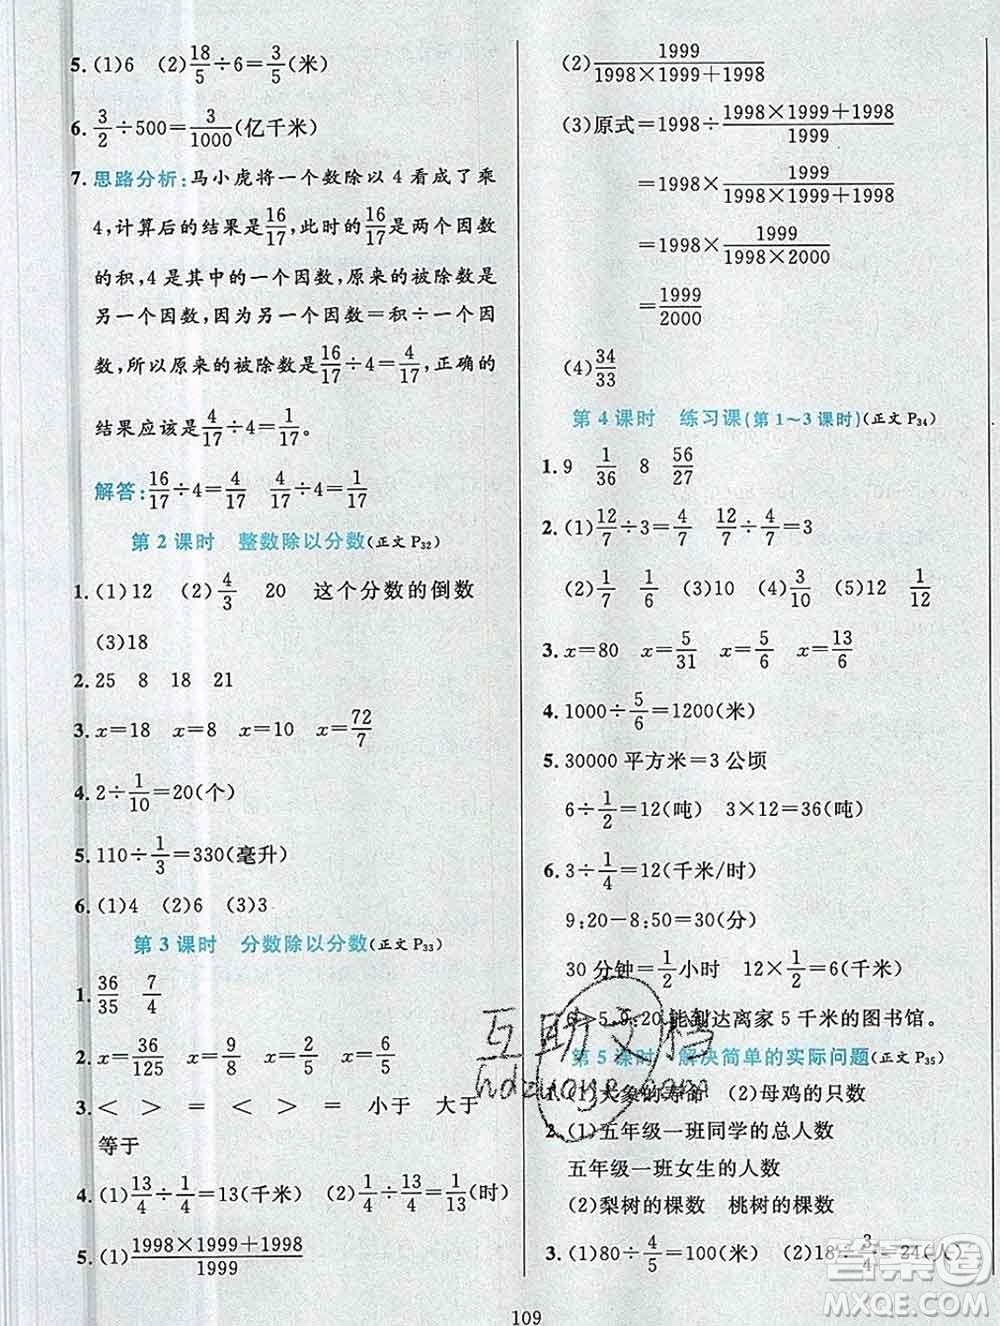 5. (1)6 (2)18/5÷6=3/5(米)
6. 3/2÷500=3/1000(亿千米)
7. 思路分析:马小虎将一个数除以 4 看成了乘
4,计算后的结果是16/17,此时的16/17是两个因数
的积,4 是其中的一个因数,原来的被除数是
另一个因数,因为另一个因数=积÷一个因
数,所以原来的被除数是16/17÷4=4/17,正确的
结果应该是4/17÷4=1/17。
解答:16/17÷4=4/17 4/17÷4=1/17
第 2 课时 整数除以分数(正文 P32)
1. (1)12 (2)4/3 20 这个分数的倒数
(3)18
2. 25 8 18 21
3. x=18 x=8 x=10 x=72/7
4. 2÷1/10=20(个)
5. 110÷1/3=330(毫升)
6. (1)4 (2)6 (3)3
第 3 课时 分数除以分数(正文 P33)
1. 36/35 7/4
2. x=36/125 x=9/8 x=2/5 x=6/5
3. < > = < > = 小于 大于
等于
4. (1)13/4÷1/4=13(千米) (2)1/4÷13/4=1/13(时)
5. (1)1998×1999+1998/1999
(2)1999/1998×1999+1998
(3)原式=1998÷1998×1999+1998/1999
=1998×1999/1998×1999+1998
=1998×1999/1998×2000
=1999/2000
(4)34/33
第 4 课时 练习课(第 1～3 课时)(正文 P34)
1. 9 1/36 8 56/27
2. (1)12/7÷3=4/7 12/7÷4/7=3
(2)1/7 1/6 (3)10 (4)3/10 (5)12 1/12
3. x=80 x=5/31 x=5/6 x=13/6
4. 1000÷5/6=1200(米)
5. 30000 平方米=3 公顷
6÷1/2=12(吨) 3×12=36(吨)
6. 3÷1/4=12(千米/时)
9:20-8:50=30(分)
30 分钟=1/2小时 12×1/2=6(千米)
6>5,9:20能到达离家 5 千米的图书馆。
第 5 课时 解决简单的实际问题(正文 P35)
1. (1)大象的寿命 (2)母鸡的只数
2. (1)五年级一班同学的总人数
五年级一班女生的人数
(2)梨树的棵数 桃树的棵数
3. (1)80÷4/5=100(米) (2)18÷3/4=24(人)
109
互助文档
hdzuoye.com
答案圈
MXQE.COM